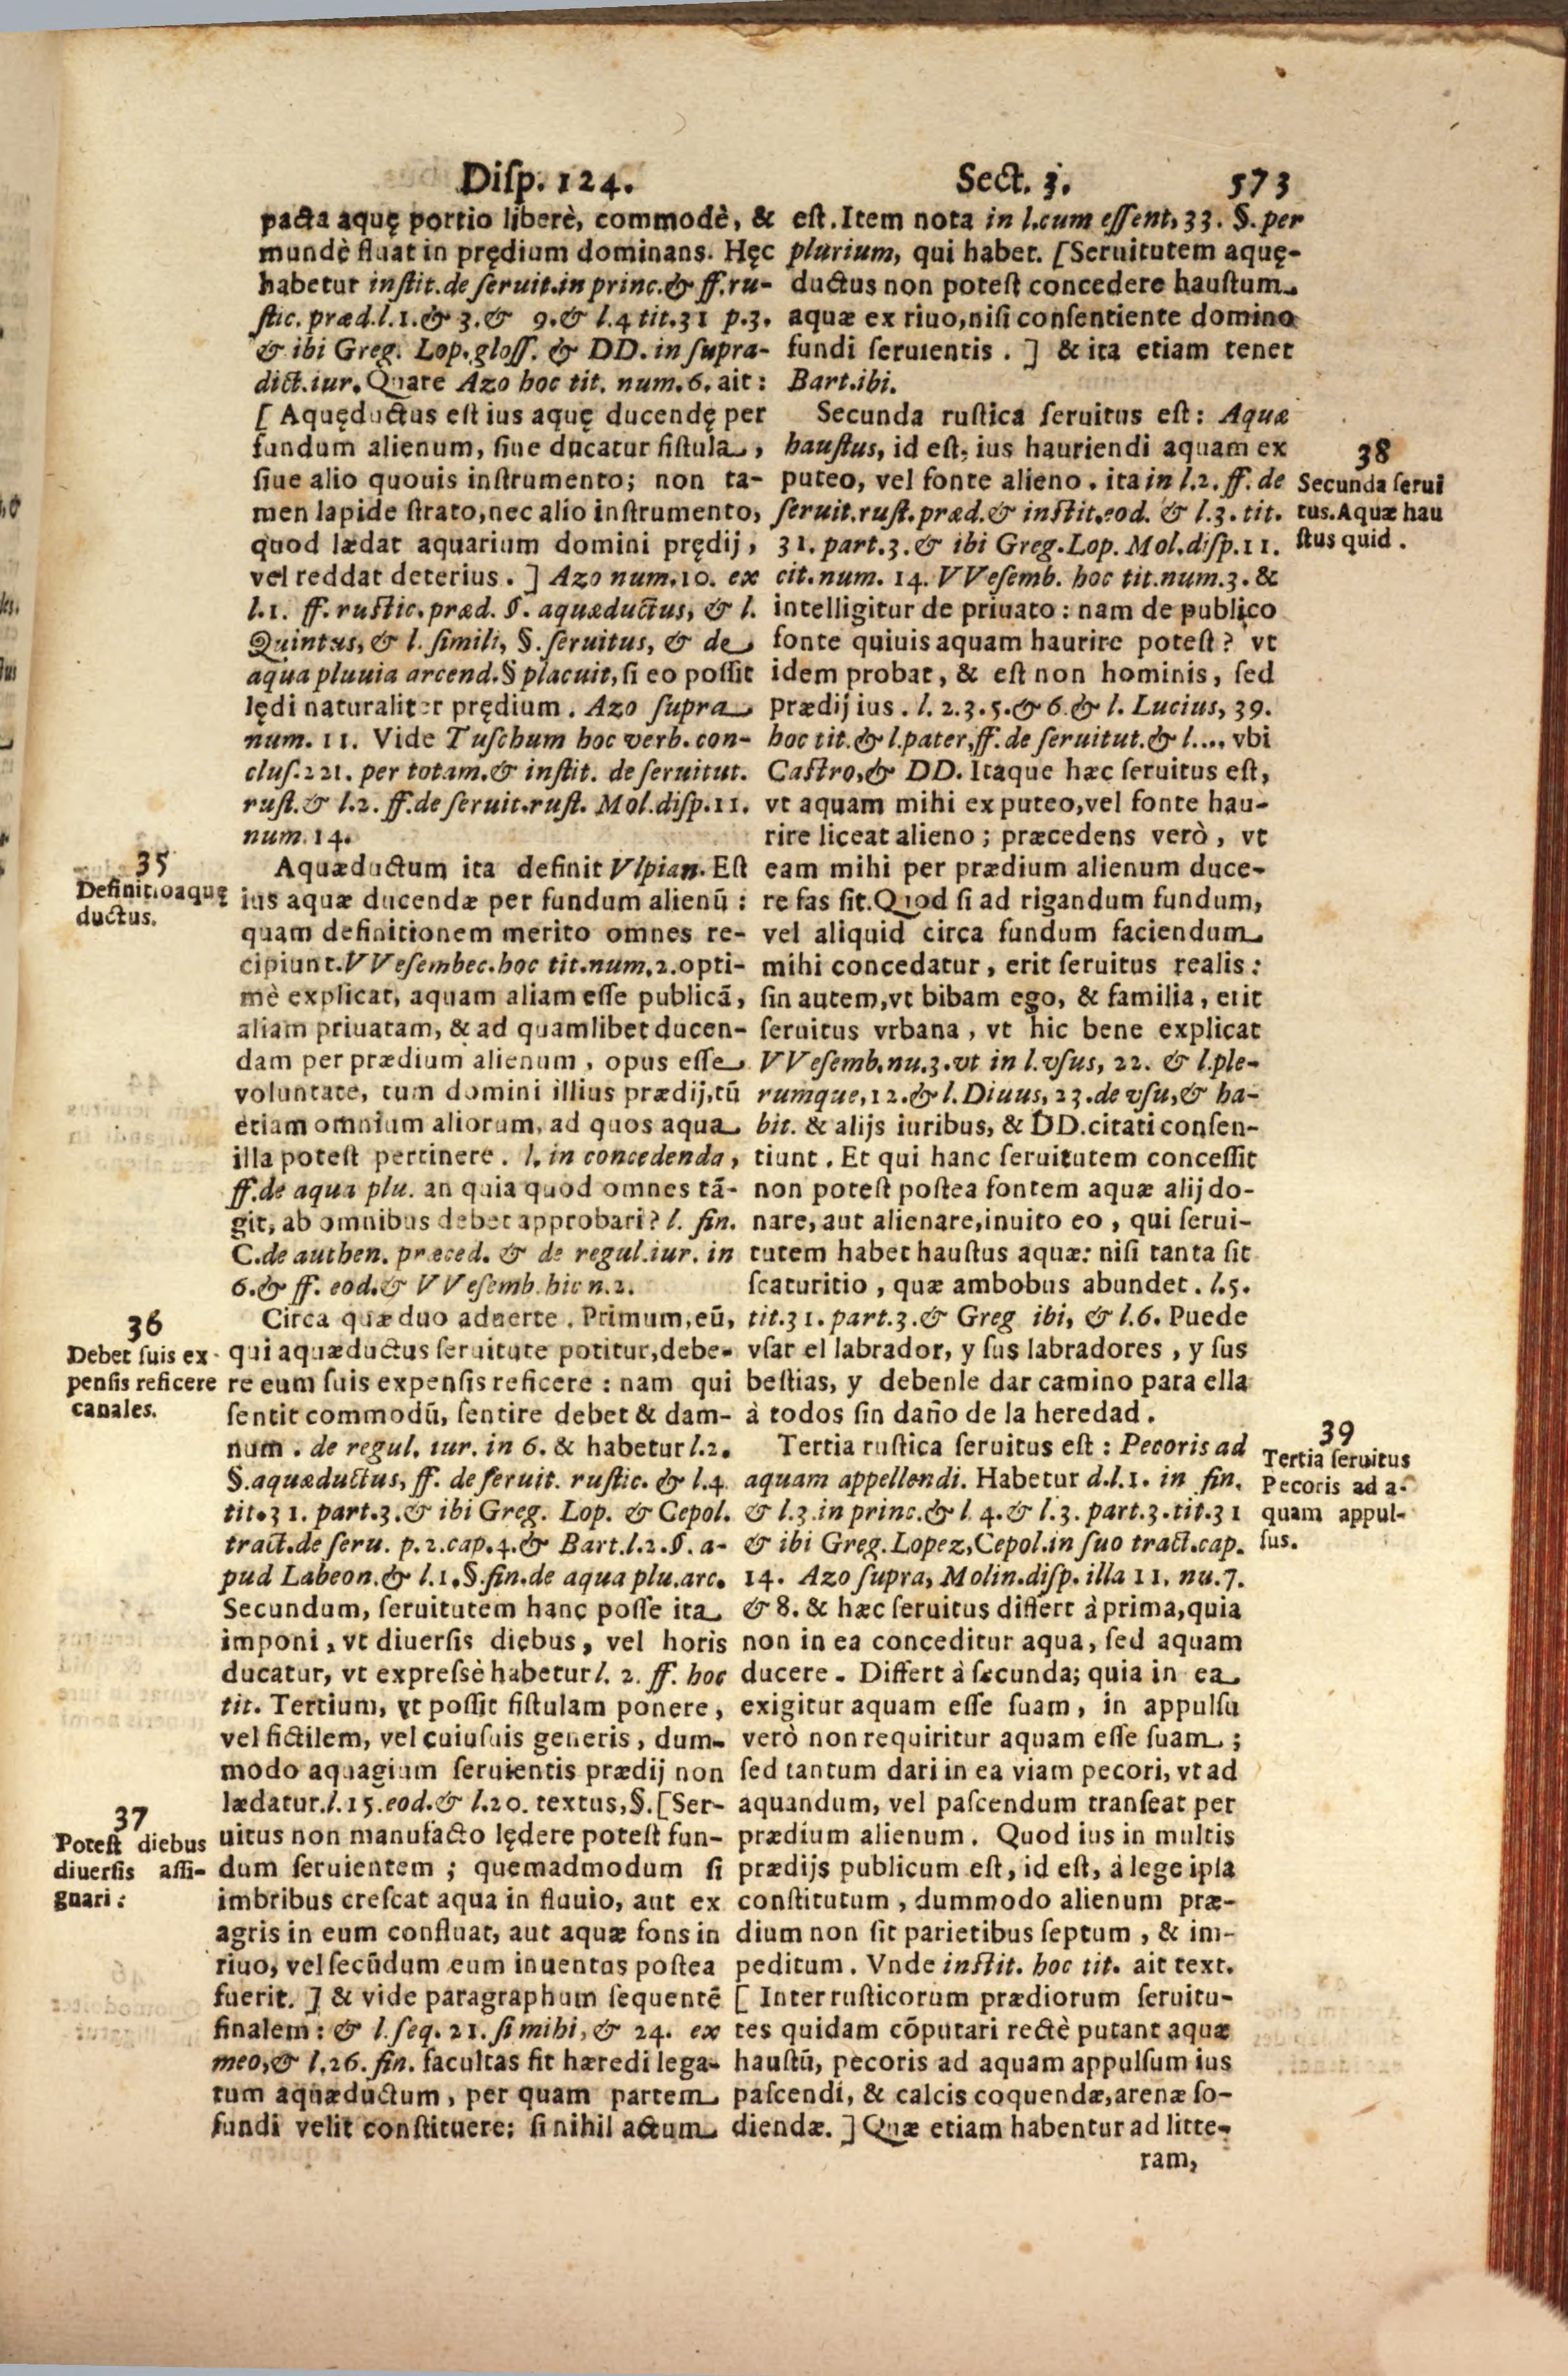 Diſp. 124. Sect. 3. 573
pacta aquę portio liberè, commodè, &
mundè fluat in prędium dominans. Hęc
habetur inſtit. de ſeruit. in princ. & ff. ru-
ſtic. præd. l. 1. & 3. & 9. & l. 4 tit. 31 p. 3.
& ibi Greg. Lop. gloſſ. & DD. in ſupra-
dict. iur. Quare Azo hoc tit. num. 6. ait:
[ Aquęductus eſt ius aquę ducendę per
fundum alienum, ſiue ducatur fiſtula,
ſiue alio quouis inſtrumento; non ta-
men lapide ſtrato, nec alio inſtrumento,
quod lædat aquarium domini prędij,
vel reddat deterius. ] Azo num. 10. ex
l. 1. ff. ruſtic. præd. §. aquæductus, & l.
Quintus, & l. ſimili, §. ſeruitus, & de
aqua pluuia arcend. § placuit, ſi eo poſſit
lędi naturaliter prędium. Azo ſupra
num. 11. Vide Tuſchum hoc verb. con-
cluſ. 221. per totam. & inſtit. de ſeruitut.
ruſt. & l. 2. ff. de ſeruit. ruſt. Mol. diſp. 11.
num. 14.
35
Definitio aquę
ductus.
Aquæductum ita definit Vlpian. Eſt
ius aquæ ducendæ per fundum alienū:
quam definitionem merito omnes re-
cipiunt. VVeſembec. hoc tit. num. 2. opti-
mè explicat, aquam aliam eſſe publicā,
aliam priuatam, & ad quamlibet ducen-
dam per prædium alienum, opus eſſe
voluntate, tum domini illius prædij, tū
etiam omnium aliorum, ad quos aqua
illa poteſt pertinere. l. in concedenda,
ff. de aqua plu. an quia quod omnes tā-
git, ab omnibus debet approbari? l. fin.
C. de authen. præced. & de regul. iur. in
6. & ff. eod. & VVeſemb. hic n. 2.
36
Debet ſuis ex-
penſis reficere
canales.
Circa quæ duo aduerte. Primum, eū,
qui aquæductus ſeruitute potitur, debe-
re eum ſuis expenſis reficere: nam qui
ſentit commodū, ſentire debet & dam-
num. de regul. iur. in 6. & habetur l. 2.
§. aquæductus, ff. de ſeruit. ruſtic. & l. 4.
tit. 31. part. 3. & ibi Greg. Lop. & Cepol.
tract. de ſeru. p. 2. cap. 4. & Bart. l. 2. §. a-
pud Labeon. & l. 1. §. fin. de aqua plu. arc.
Secundum, ſeruitutem hanc poſſe ita
imponi, vt diuerſis diebus, vel horis
ducatur, vt expreſsè habetur l. 2. ff. hoc
tit. Tertium, vt poſſit fiſtulam ponere,
vel fictilem, vel cuiuſuis generis, dum-
modo aquagium ſeruientis prædij non
lædatur. l. 15. eod. & l. 20. textus, §. [Ser-
37
Poteſt diebus
diuerſis aſſi-
gnari:
uitus non manufacto lędere poteſt fun-
dum ſeruientem; quemadmodum ſi
imbribus creſcat aqua in fluuio, aut ex
agris in eum confluat, aut aquæ fons in
riuo, vel ſecūdum eum inuentus poſtea
fuerit. ] & vide paragraphum ſequentē
finalem: & l. ſeq. 21. ſi mihi, & 24. ex
meo, & l. 26. fin. facultas fit hæredi lega-
tum aquæductum, per quam partem
fundi velit conſtituere: ſi nihil actum
eſt. Item nota in l. cum eſſent, 33. §. per
plurium, qui habet. [Seruitutem aquę-
ductus non poteſt concedere hauſtum
aquæ ex riuo, niſi conſentiente domino
fundi ſeruientis. ] & ita etiam tenet
Bart. ibi.
Secunda ruſtica ſeruitus eſt: Aquæ
hauſtus, id eſt, ius hauriendi aquam ex
puteo, vel fonte alieno. ita in l. 2. ff. de
ſeruit. ruſt. præd. & inſtit. eod. & l. 3. tit.
31. part. 3. & ibi Greg. Lop. Mol. diſp. 11.
cit. num. 14. VVeſemb. hoc tit. num. 3. &
intelligitur de priuato: nam de publico
fonte quiuis aquam haurire poteſt? vt
idem probat, & eſt non hominis, ſed
prædij ius. l. 2. 3. 5. & 6. & l. Lucius, 39.
hoc tit. & l. pater, ff. de ſeruitut. & l. ... vbi
Caſtro, & DD. Itaque hæc ſeruitus eſt,
vt aquam mihi ex puteo, vel fonte hau-
rire liceat alieno; præcedens verò, vt
eam mihi per prædium alienum duce-
re fas ſit. Quod ſi ad rigandum fundum,
vel aliquid circa fundum faciendum
mihi concedatur, erit ſeruitus realis:
ſin autem, vt bibam ego, & familia, erit
ſeruitus vrbana, vt hic bene explicat
VVeſemb. nu. 3. vt in l. vſus, 22. & l. ple-
rumque, 12. & l. Diuus, 23. de vſu, & ha-
bit. & alijs iuribus, & DD. citati conſen-
tiunt. Et qui hanc ſeruitutem conceſſit
non poteſt poſtea fontem aquæ alij do-
nare, aut alienare, inuito eo, qui ſerui-
tutem habet hauſtus aquæ: niſi tanta ſit
ſcaturitio, quæ ambobus abundet. l. 5.
tit. 31. part. 3. & Greg ibi, & l. 6. Puede
vſar el labrador, y ſus labradores, y ſus
beſtias, y debenle dar camino para ella
à todos ſin daño de la heredad.
38
Secunda ſerui
tus. Aquæ hau
ſtus quid.
Tertia ruſtica ſeruitus eſt: Pecoris ad
aquam appellendi. Habetur d. l. 1. in fin.
& l. 3. in princ. & l. 4. & l. 3. part. 3. tit. 31
& ibi Greg. Lopez, Cepol. in ſuo tract. cap.
14. Azo ſupra, Molin. diſp. illa 11. nu. 7.
& 8. & hæc ſeruitus differt à prima, quia
non in ea conceditur aqua, ſed aquam
ducere. Differt à ſecunda; quia in ea
exigitur aquam eſſe ſuam, in appulſu
verò non requiritur aquam eſſe ſuam;
ſed tantum dari in ea viam pecori, vt ad
aquandum, vel paſcendum tranſeat per
prædium alienum. Quod ius in multis
prædijs publicum eſt, id eſt, à lege ipſa
conſtitutum, dummodo alienum præ-
dium non ſit parietibus ſeptum, & im-
peditum. Vnde inſtit. hoc tit. ait text.
[ Inter ruſticorum prædiorum ſeruitu-
tes quidam cōputari rectè putant aquæ
hauſtū, pecoris ad aquam appulſum ius
paſcendi, & calcis coquendæ, arenæ fo-
diendæ. ] Quæ etiam habentur ad litte-
ram,
39
Tertia ſeruitus
Pecoris ad a-
quam appul-
ſus.